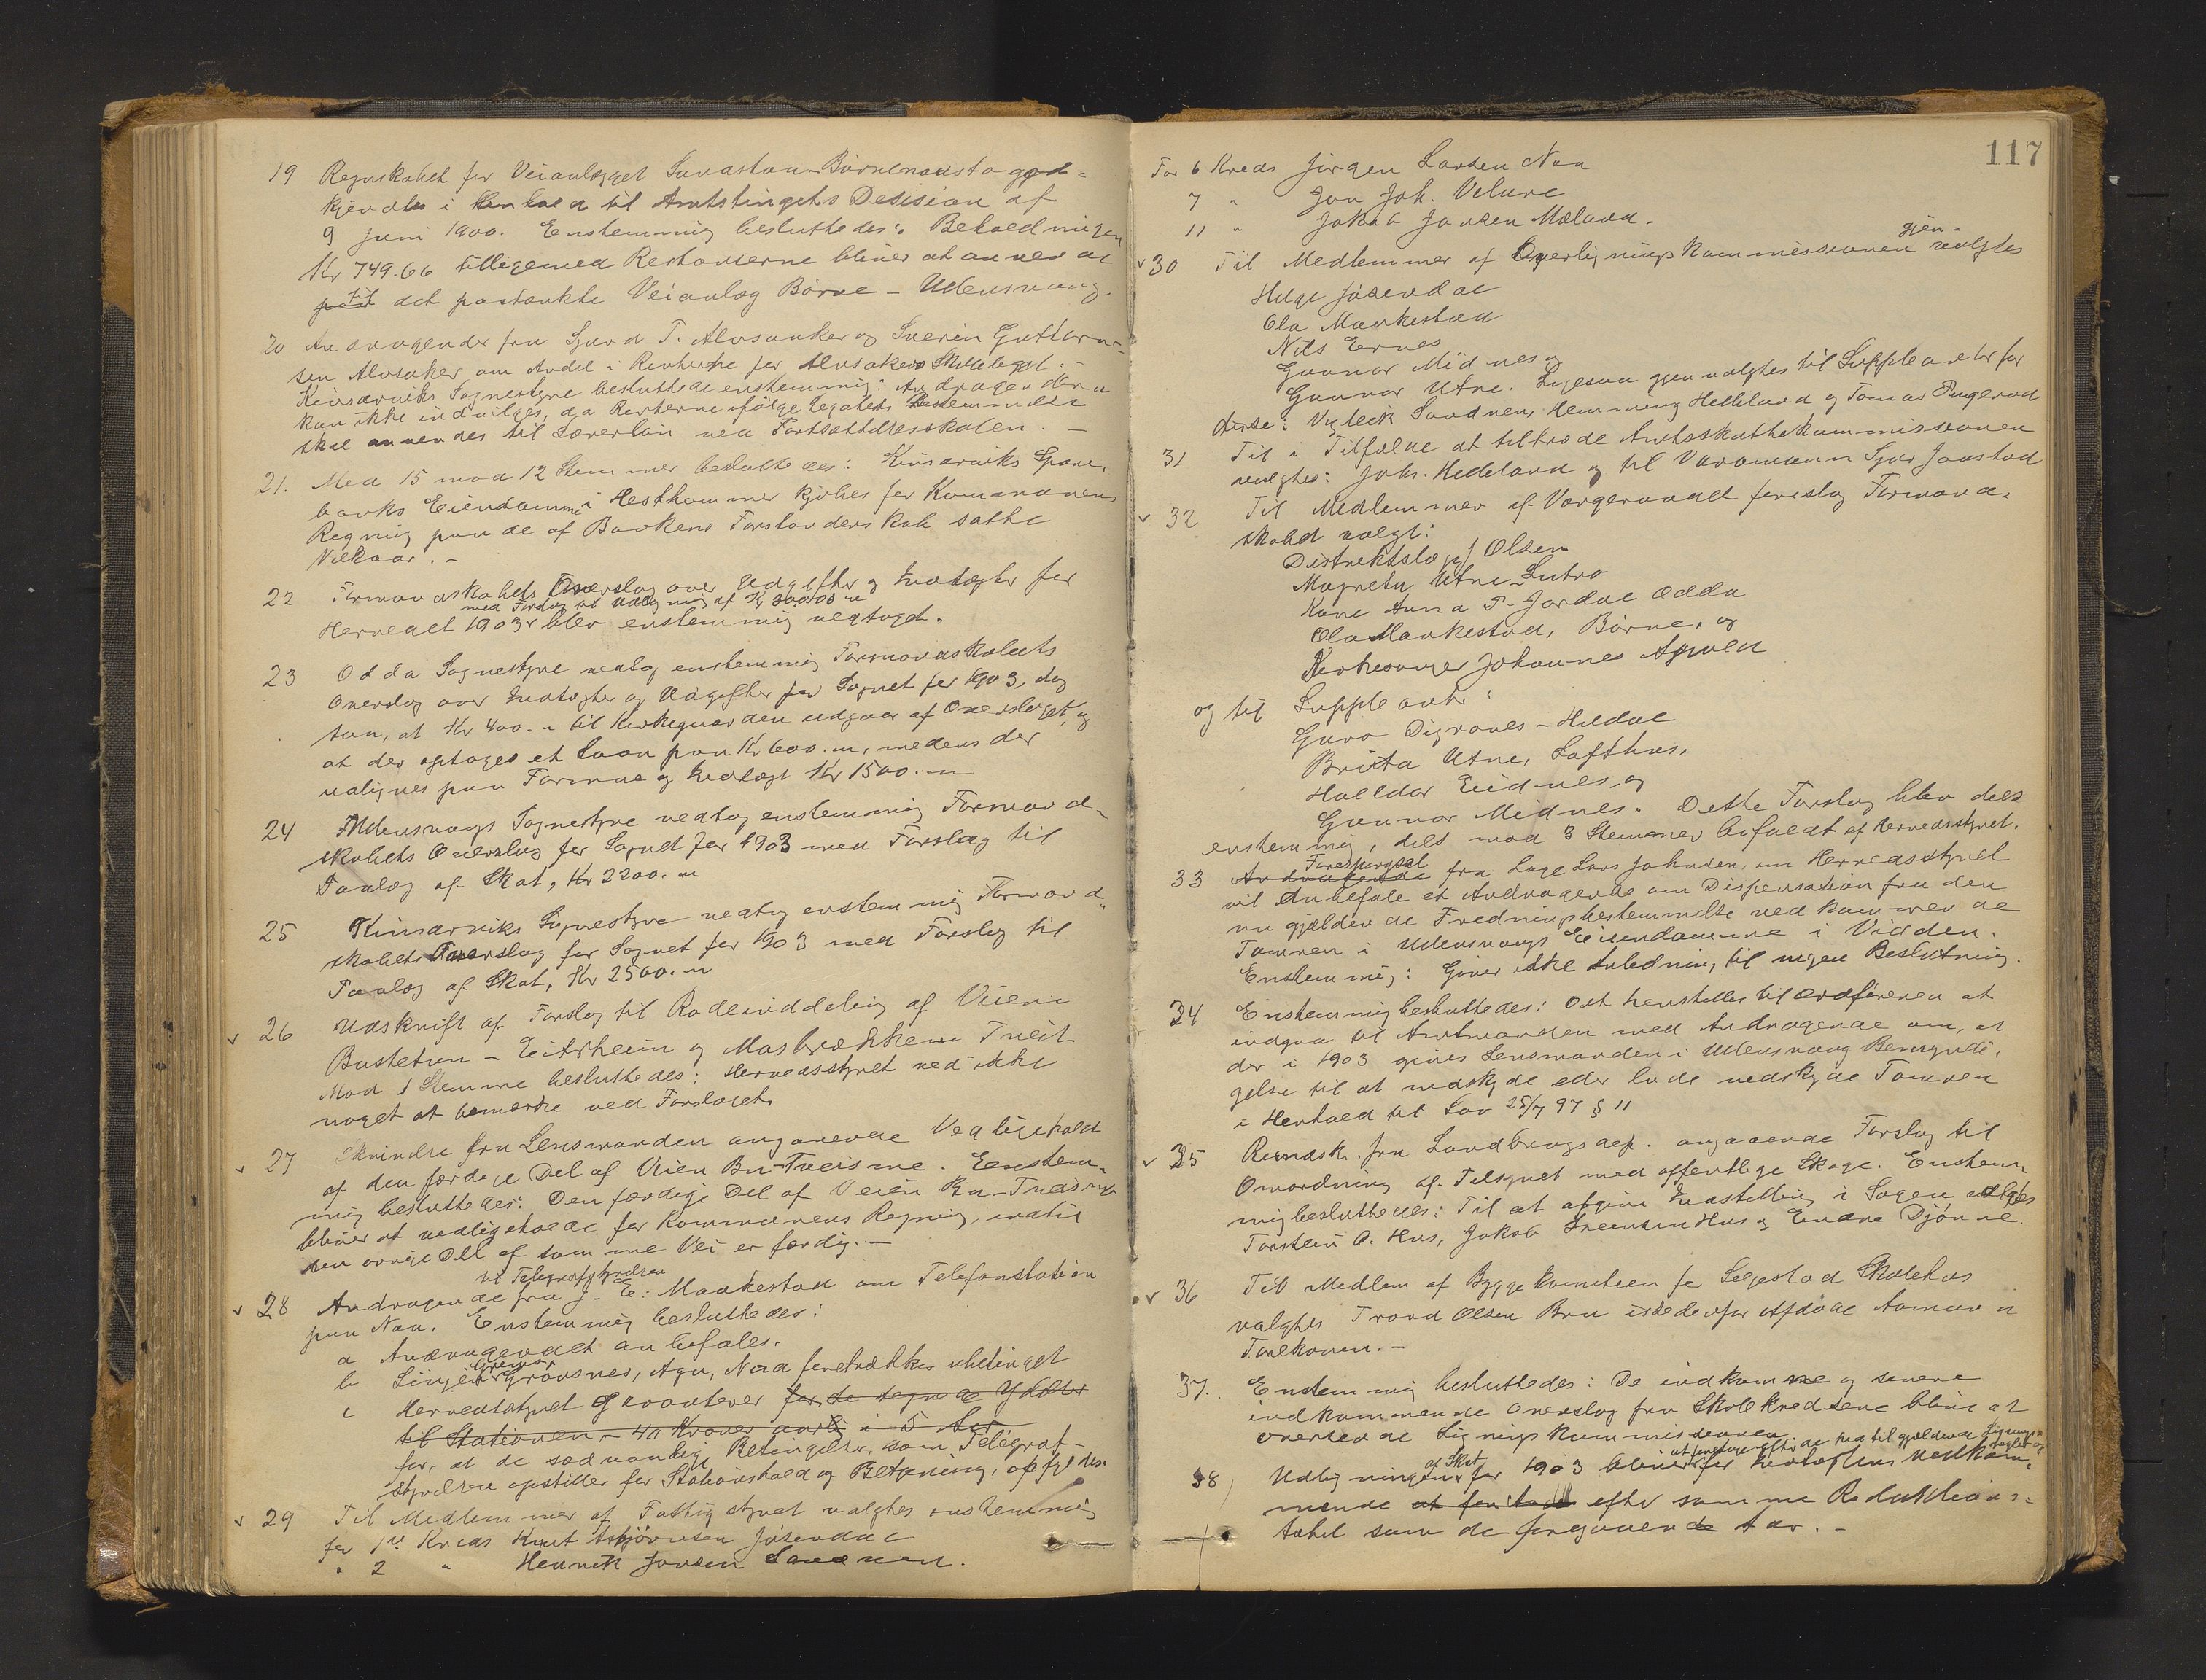 19 Regnskabet for Veianlægget Sandstøa-Børvenaustø god-
kjendtes i Henhold til Amtstingets Desision af
9 Juni 1900. Enstemmig besluttedes: Beholdningen
Kr 749.66 tilligemed Restanserne bliver at anvende
paa til det paatænkte Veianlæg Børve – Ullensvang.
20 Andragender fra Sjurd T. Alvsaaker og Sverin Guttorm-
sen Alvsaker om Andel i Renterne for Alvsakers Skolelegat. –
Kinserviks Sognestyre besluttede enstemmig: Andragenderne
kan ikke indvilges, da Renterne ifølge Legatets Bestemmelse
skal anvendes til Lærerløn ved Fortsættelsesskolen. –
21. Med 15 mod 12 Stemmer besluttedes: Kinserviks Spare-
banks Eiendomme i Hesthammer kjøbes for Kommunens
Regning paa de af Bankens Forstanderskab satte
Vilkaar. –
22 Formandskabets Overslag over Udgifter og Indtægter for
med Forslag til Udligning af Kr 30000 „
Herredet 1903 blev enstemmig vedtaget.
23 Odda Sognestyre vedtog enstemmig Formandskabets
Overslag over Indtægter og Udgifter for Sognet for 1903, dog
saa, at Kr 400. „ til Kirkegaarden udgaar af Overslaget, og
at der optages et Laan paa Kr 600. „, medens der
udlignes paa Formue og Indtægt Kr 1500. „
24 Ullensvangs Sognestyre vedtog enstemmig Formand-
skabets Overslag for Sognet for 1903 med Forslag til
Paalæg af Skat, Kr 2200. „
25 Kinserviks Sognestyre vedtog enstemmig Formand-
skabets Overslag for Sognet for 1903 med Forslag til
Paalæg af Skat, Kr 2500. „
26 Udskrift af Forslag til Rodeinddeling af Veiene
Bustetun – Eitrheim og Maabrækken Tveit
Mod 1 Stemme besluttedes: Herredsstyret ved ikke
noget at bemærke ved Forslaget
27 Skrivelse fra Lensmanden angaaende Vedligehold
af den færdige Del af Veien Bu-Tveisme. Eenstem-
mig besluttedes: Den færdige Del af Veien Bu-Tveisme
bliver at vedligeholde for Kommunens Regning, indtil
den øvrige Del af samme Vei er færdig. –
til Telegrafstyrelsen
28 Andragende fra J. E. Maakestad om Telefonstation
paa Naa. Enstemmig besluttedes:
a Andragendet anbefales.
b Linjen Grimo, Grønsnes, Aga, Naa foretrækkes ubetinget
c Herredstyret garanterer for de tegnede Ydelser
til Stationen – 40 Kroner aarl i 5 Aar
for, at de sædvanlige Betingelser, som Telegraf-
styrelsen opstiller for Stationshold og Betjening, opfyldes.
29 Til Medlemmer af Fattigstyret valgtes enstemmig
for 1ste Kreds Knut Asbjørnsen Jøsendal
„ 2 „ Henrik Jonsen Sandven.
117
For 6 Kreds Jørgen Larsen Naa
7 „ Jon Joh. Velure
11 „ Jakob Jonsen Mæland.
gjen-
30 Til Medlemmer af Overligningskommissionen valgtes
Helge Jøsendal
Ola Maakestad
Nils Ernes
Gunnar Midnes og
Gunnar Utne. Ligesaa gjenvalgtes til Suppleanter for
disse: Vigleik Sandven, Hemming Helleland og Tomas Ringerud
31 Til i Tilfælde at tiltræde Amtsskattekommissionen
valgtes: Johs. Helleland og til Varamann Sjur Jaastad
32 Til Medlemmer af Vergeraadet foreslog Formand-
skabet valgt:
Distriktslæge Olsen
Magreta Utne Lutro
Kone Anna T. Jordal Odda
Ola Maakestad, Børve, og
Kirkesanger Johannes Apold
og til Suppleanter:
Guro Digranes – Hildal
Brita Utne, Lofthus,
Halldor Eidnes, og
Gunnar Midnes. Dette Forslag blev dels
enstemmig, dels mod 3 Stemmer bifaldt af Herredsstyret.
Forespørgsel
33 Andragende fra Lage Lars Johnsen, om Herredsstyret
vil anbefale et Andragende om Dispensation fra den
nu gjældende Fredningsbestemmelse vedkommende
Tamren i Ullensvangs Eiendomme i Vidden.
Enstemmig: Giver ikke Anledning til nogen Beslutning.
34 Enstemmig besluttedes: Det henstilles til Ordføreren at
indgaa til Amtmanden med Andragende om, at
der i 1903 gives Lensmanden i Ullensvang Bemyndi-
gelse til at nedskyde eller lade nedskyde Tamren
i Henhold til Lov 25/7 97 § 11
35 Rundsk. fra Landbrugsdep. angaaende Forslag til
Omordning af Tilsynet med offentlige Skoge. Enstem-
mig besluttedes: Til at afgive Indstilling i Sagen valgtes
Torstein O. Hus, Jakob Sveinsen Hus og Endre Djønne.
36 Til Medlem af Byggekomiteen for Seljestad Skolehus
valgtes Trond Olsen Bru istedenfor afdøde Aamund
Tarekoven. –
37. Enstemmig besluttedes: De indkomne og senere
indkommende Overslag fra Skolekredsene bliver at
oversende Ligningskommissionen
af Skat at foretage efter de hidtil gjældende Lignings-
regler og
38 Udligningen for 1903 bliver for Indtægtens Vedkom-
mende at foretage efter samme Reduktions-
tabel som de foregaaende Aar. –